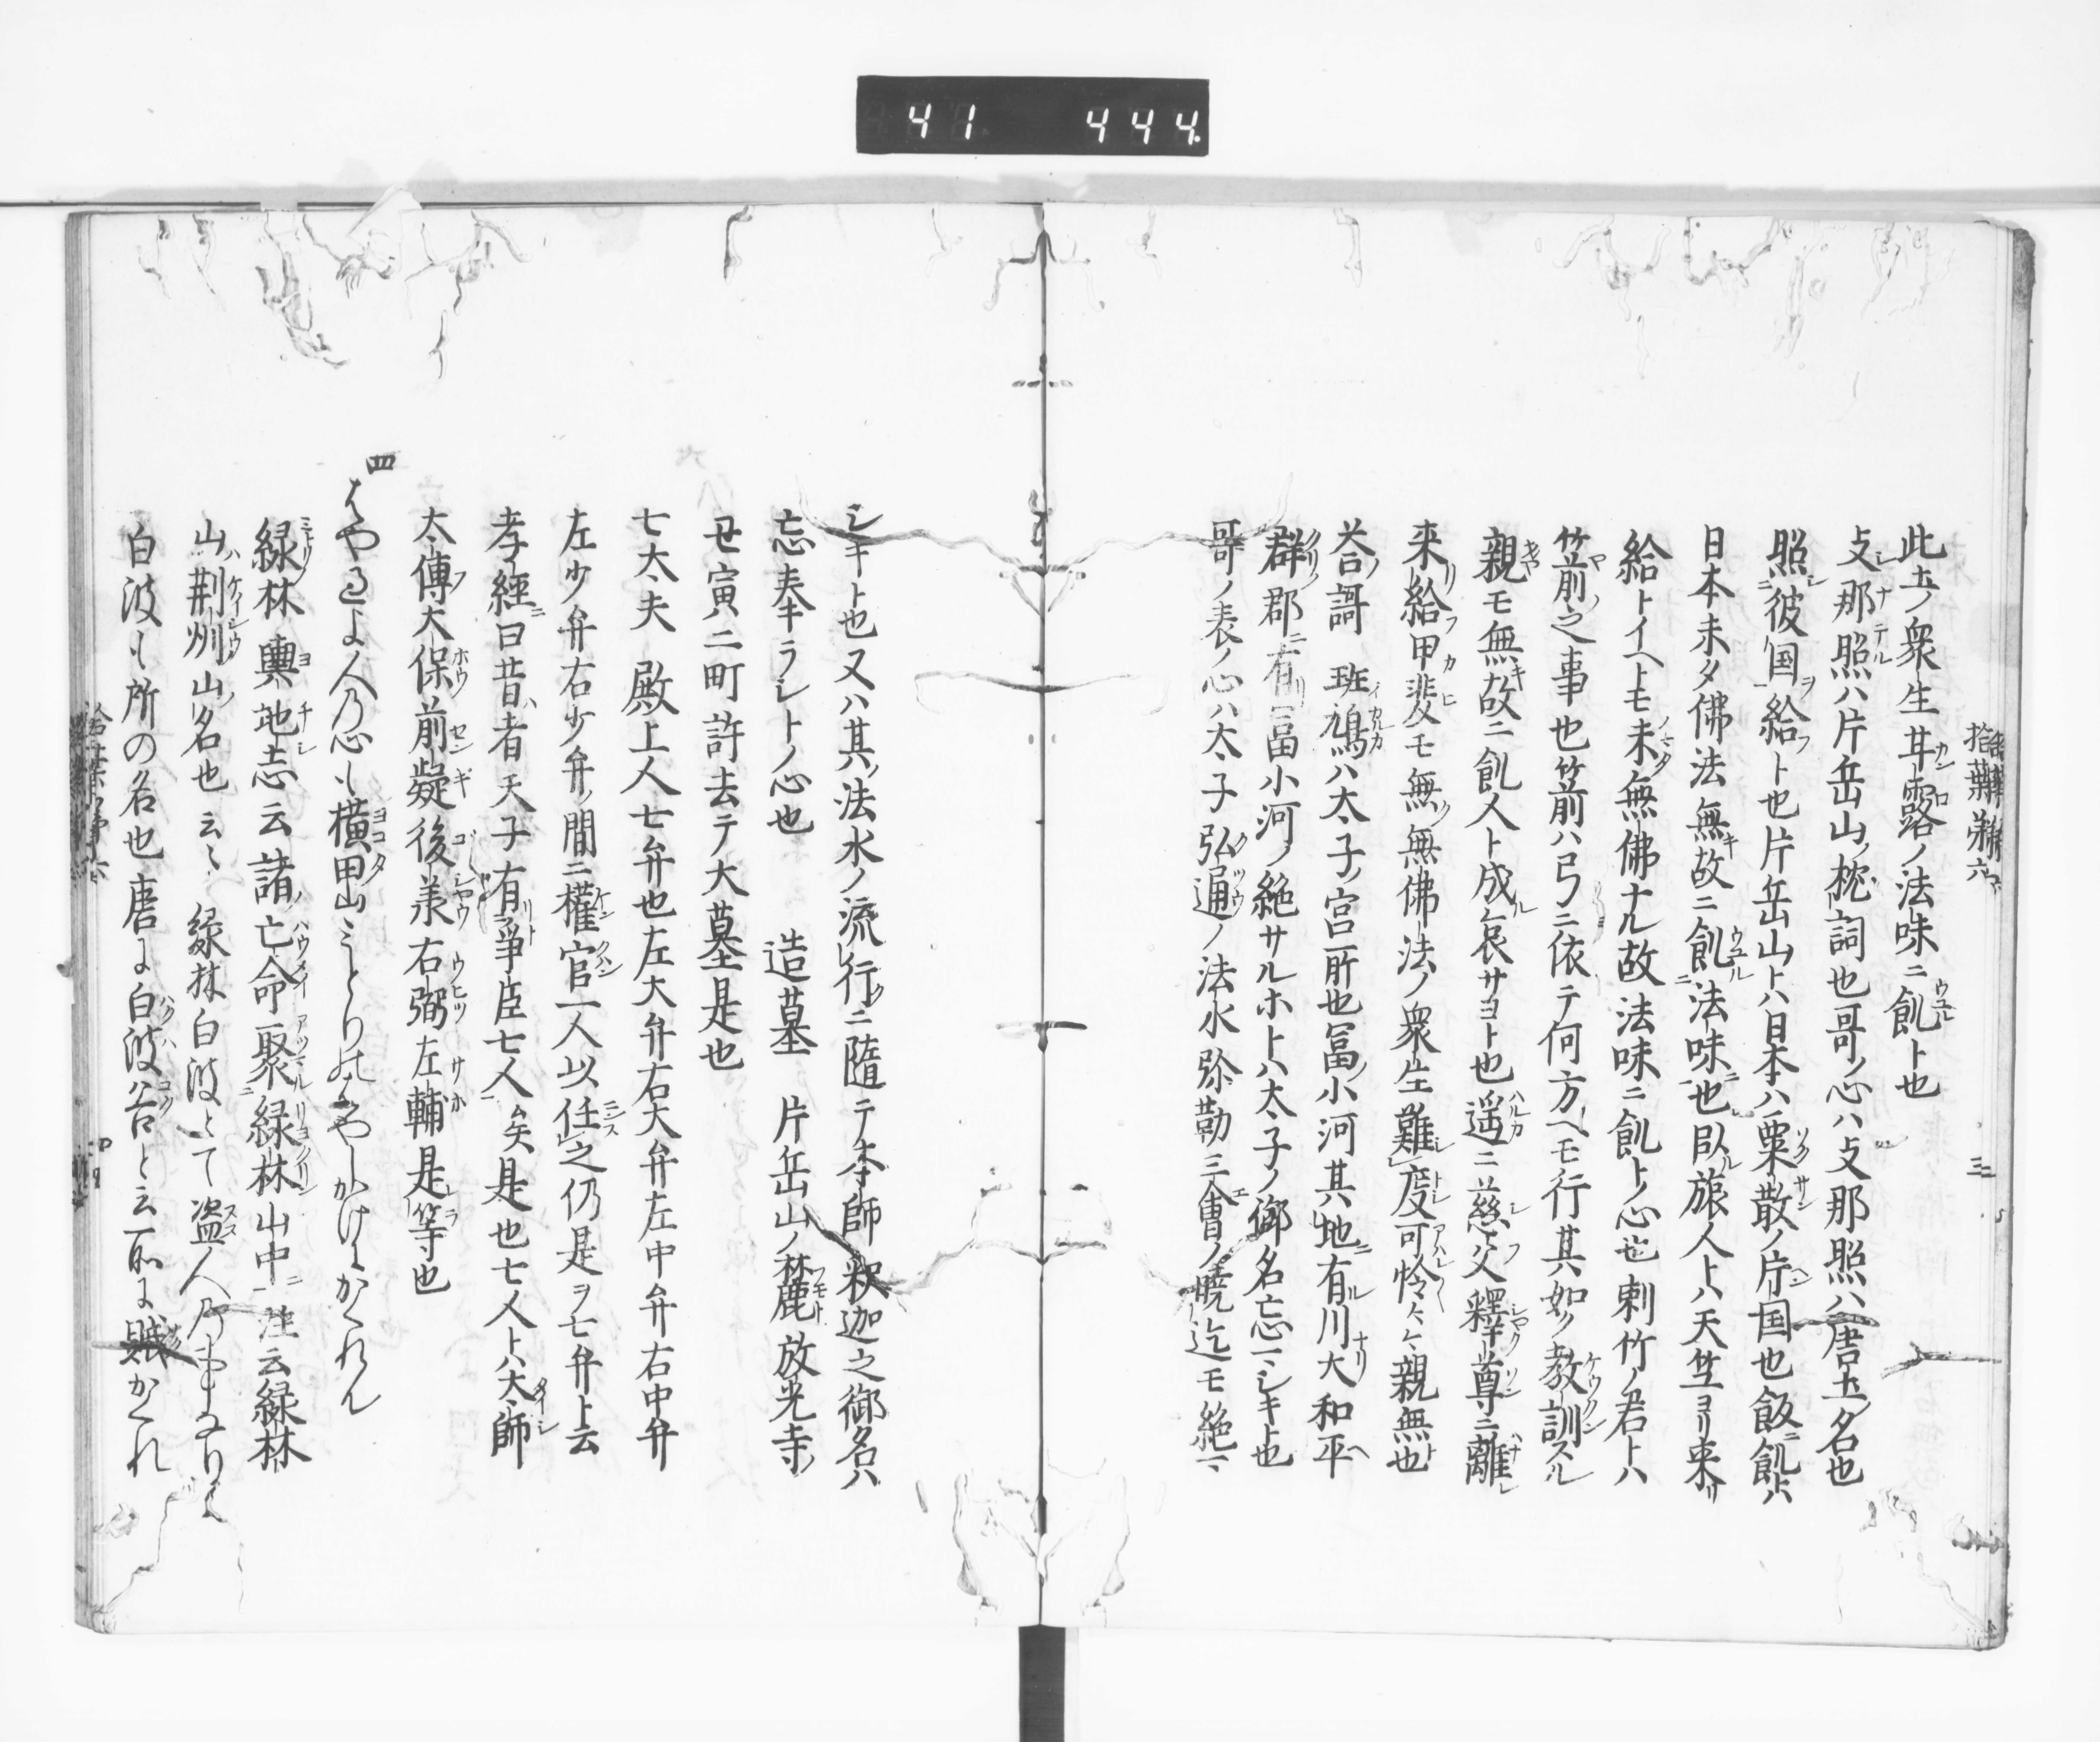 41 444
拾葉鈔六
三
此土ノ衆生甘露ノ法味ニ飢ト也
攴那照ハ片岳山ノ枕詞也哥ノ心ハ攴那照ハ唐土ノ名也
照彼国給ト也片岳山トハ日本ハ粟散ノ片国也飯飢トハ
日本未タ佛法無故ニ飢法味也臥旅人トハ天竺ヨリ来リ
給トイヘトモ未無佛ナル故法味ニ飢トノ心也刺竹ノ君トハ
笠前之事也笠前ハ弓ニ依テ何方ヘモ行其如ノ教訓スル
親モ無故ニ飢人ト成哀サヨト也遥ニ慈父釋尊ニ離レ
来給甲斐モ無ノ無佛法ノ衆生難度可怜々々親無也
荅謌 班鳩ハ太子ノ宮所也冨小河其地有川大和平
群郡ニ有冨小河ノ絶サルホトハ太子ノ御名忘シキト也
哥ノ表ノ心ハ太子弘通ノ法水弥勒三會ノ曉迄モ絶マ
シキト也又ハ其ノ法水ノ流行ニ隨テ本師釈迦之御名ハ
忘奉ラシトノ心也 造墓 片岳山ノ麓放光寺ノ
丑寅二町許去テ大墓是也
七大夫 殿上人七弁也左大弁右大弁左中弁右中弁
左少弁右少弁ノ間ニ權官一人以任之仍是ヲ七弁ト云
孝經曰昔者天子有爭臣七人矣是也七人トハ大師
太傅大保前疑後羕右弼左輔是等也
四
はやるよ人乃心も横田山みとりの
緑林 輿地志云諸亡命聚緑林山中注云緑林
山荆州山名也云々 緑林白波とて盗人乃事なり
白波も所の名也唐に白波谷と云所に賊かくれ